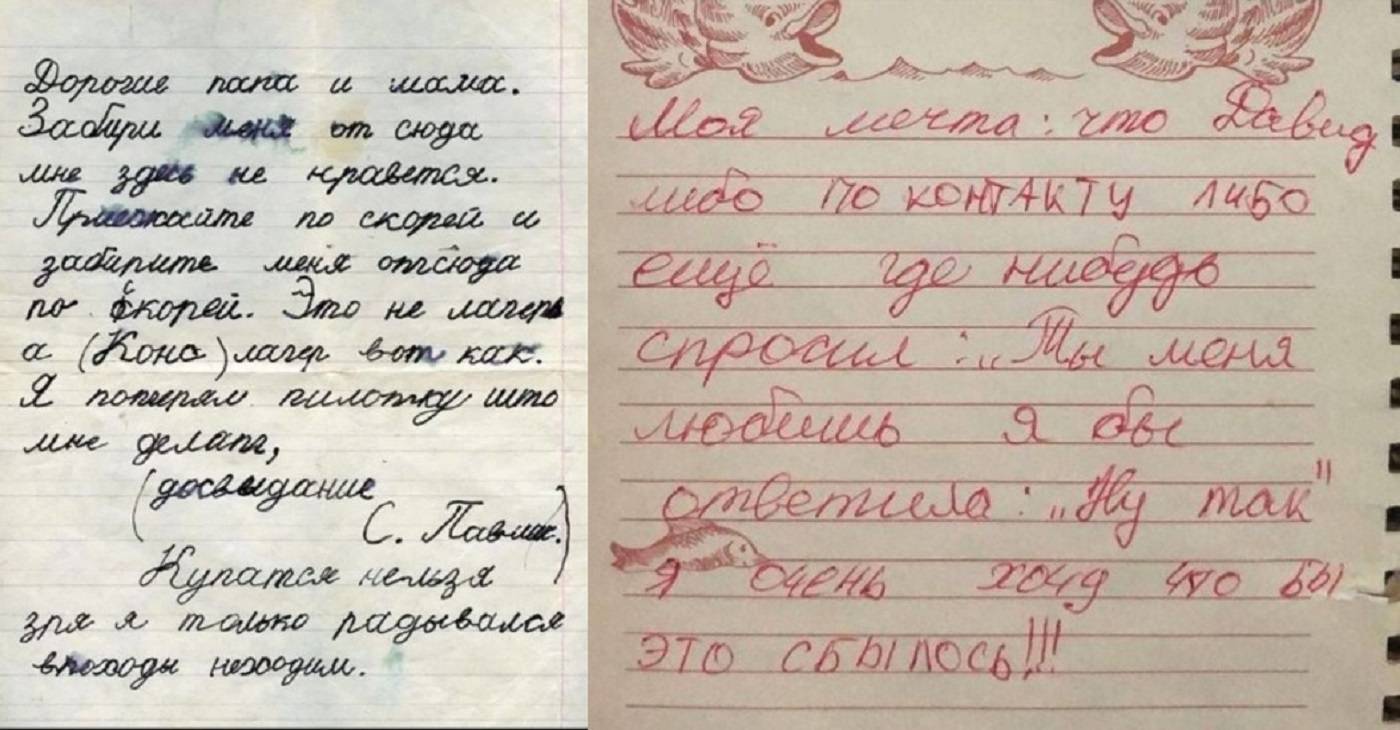 Дорогие папа и мама.
Забири меня от сюда
мне здесь не нравется.
Приезжайте по скорей и
забирите меня отсюда
по скорей. Это не лагерь
а (Конс) лагер вот как.
Я потерял пилотку што
мне делат,
(досвидание
С. Павлик.)
Купатся нельзя
зря я только радывался
впоходы неходим.
Моя мечта: что Давид
либо ПО КОНТАКТУ ЛИБО
ещё где нибудь
спросил: „Ты меня
любишь я бы
ответила: „Ну так"
я ОЧЕНЬ ХОЧУ ЧТО БЫ
ЭТО СБЫЛОСЬ!!!